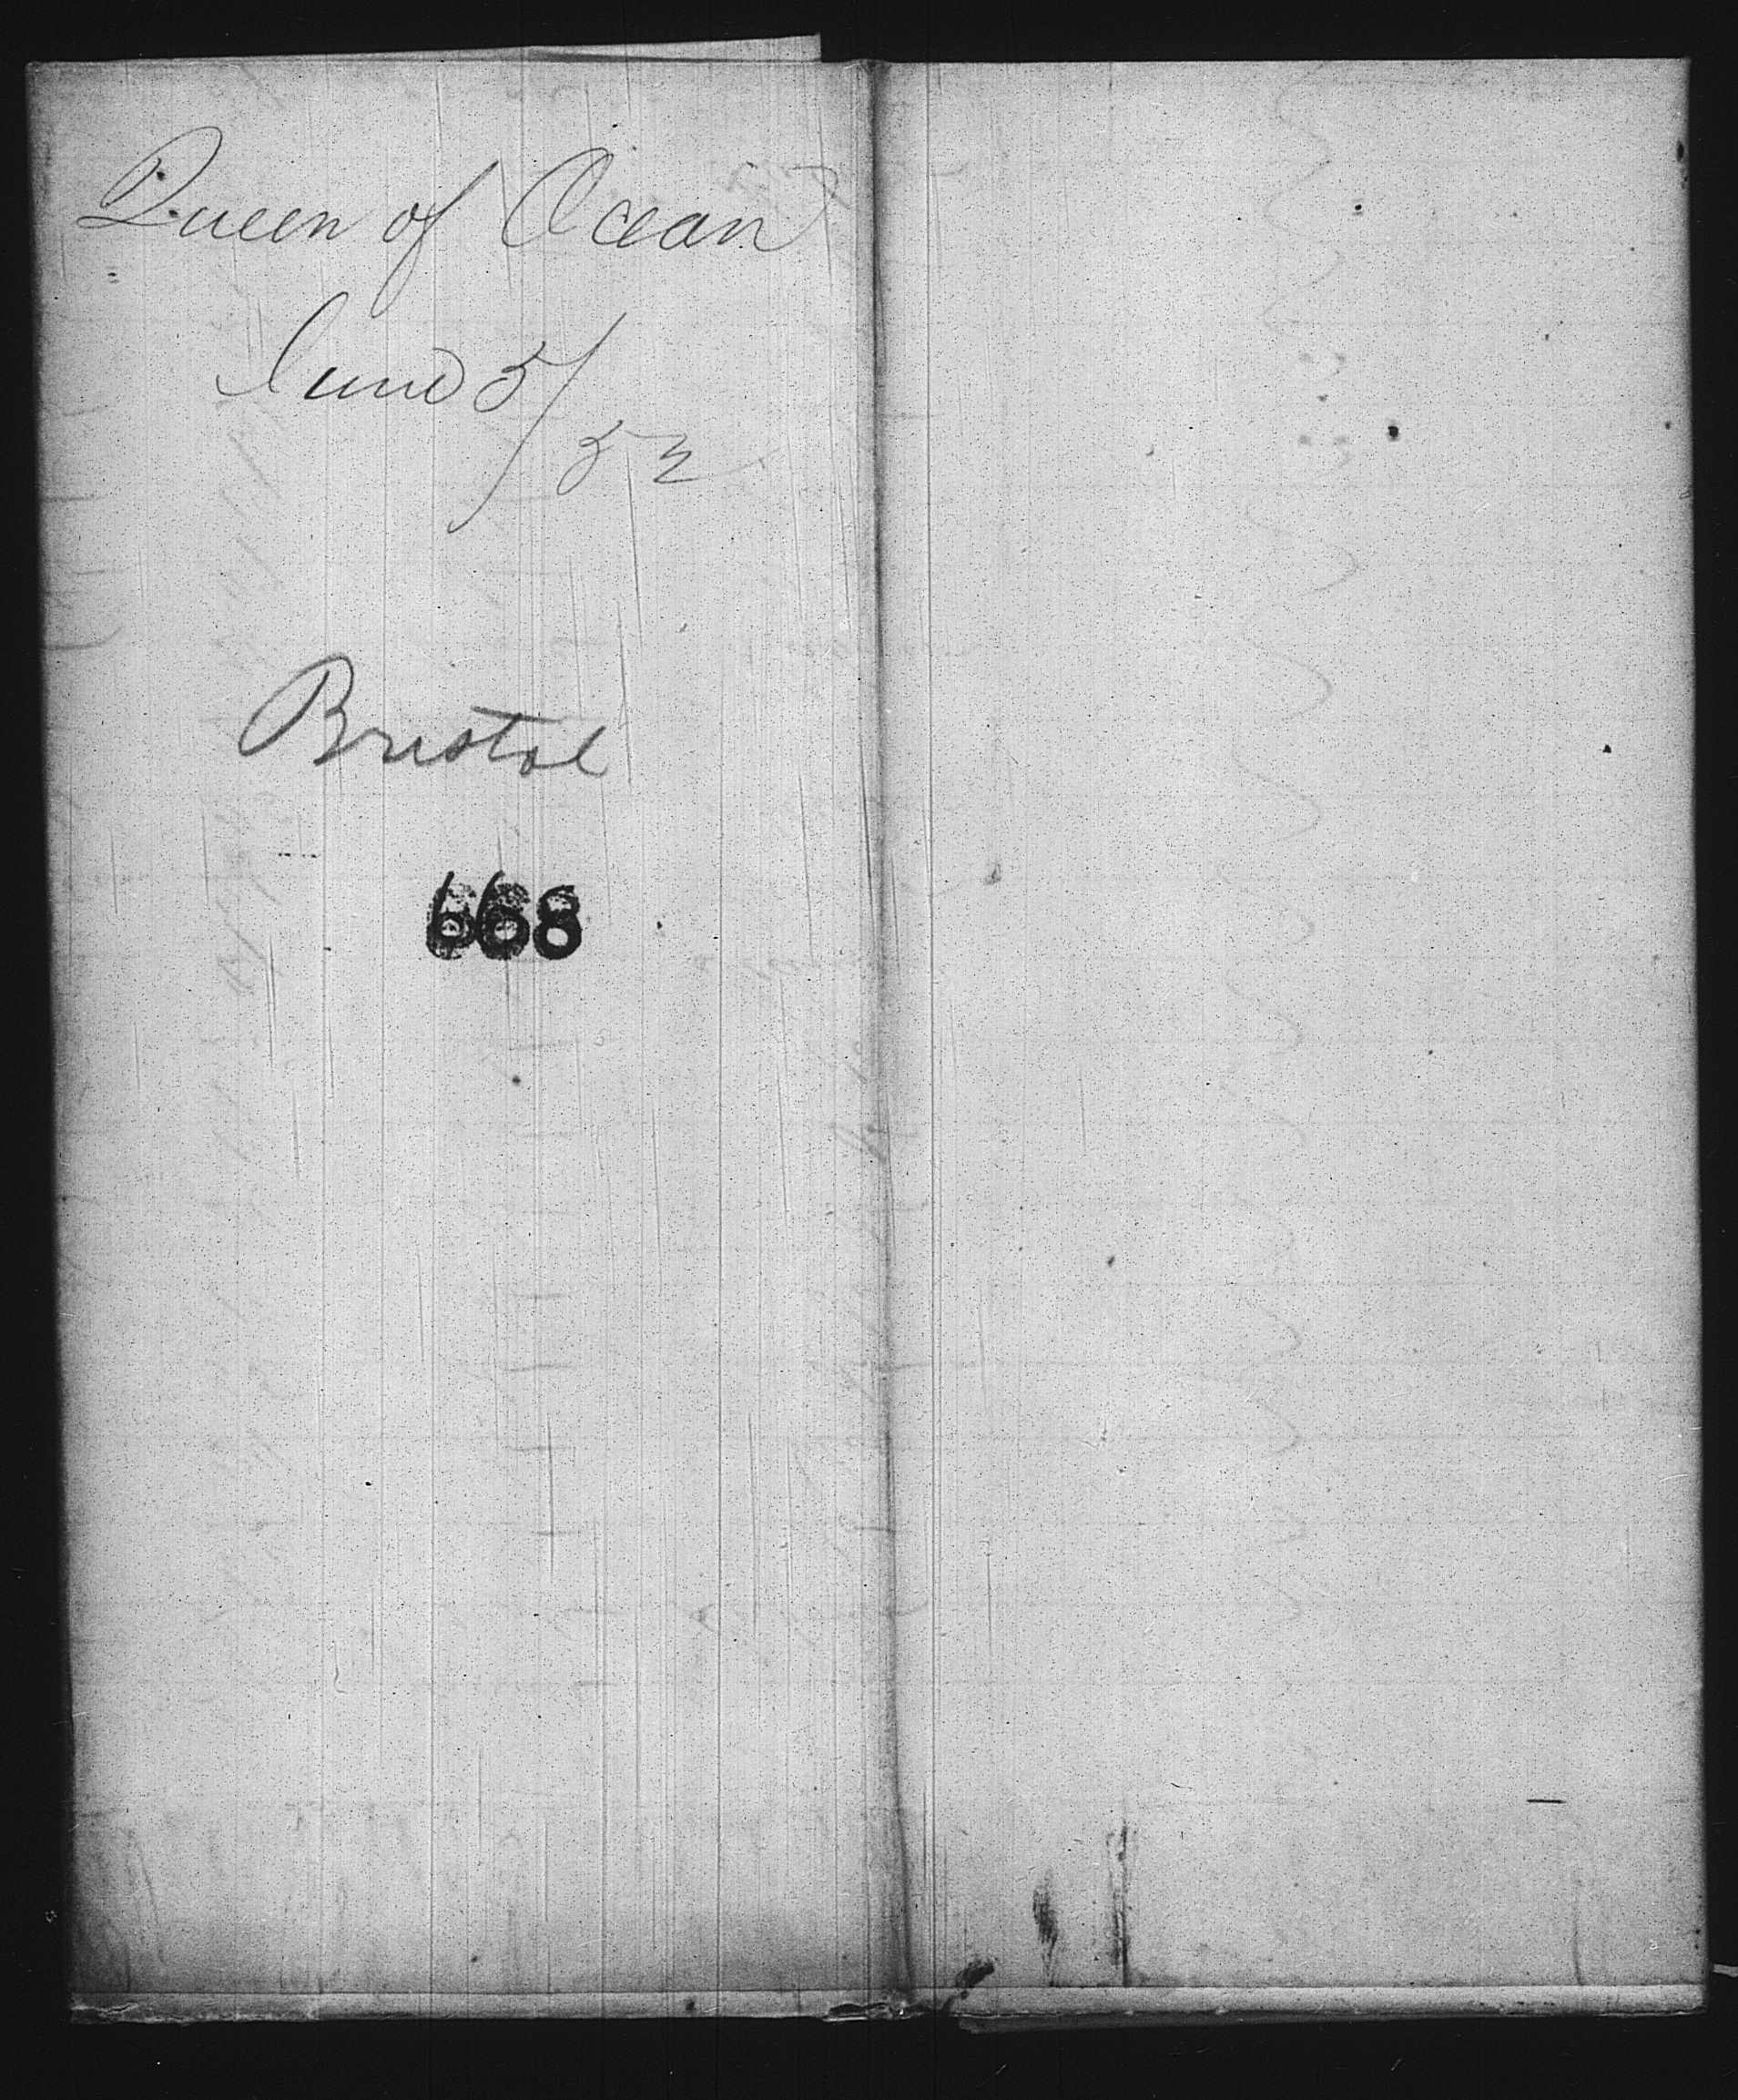 Queen of Ocean
June 5/
52
Bristol
668